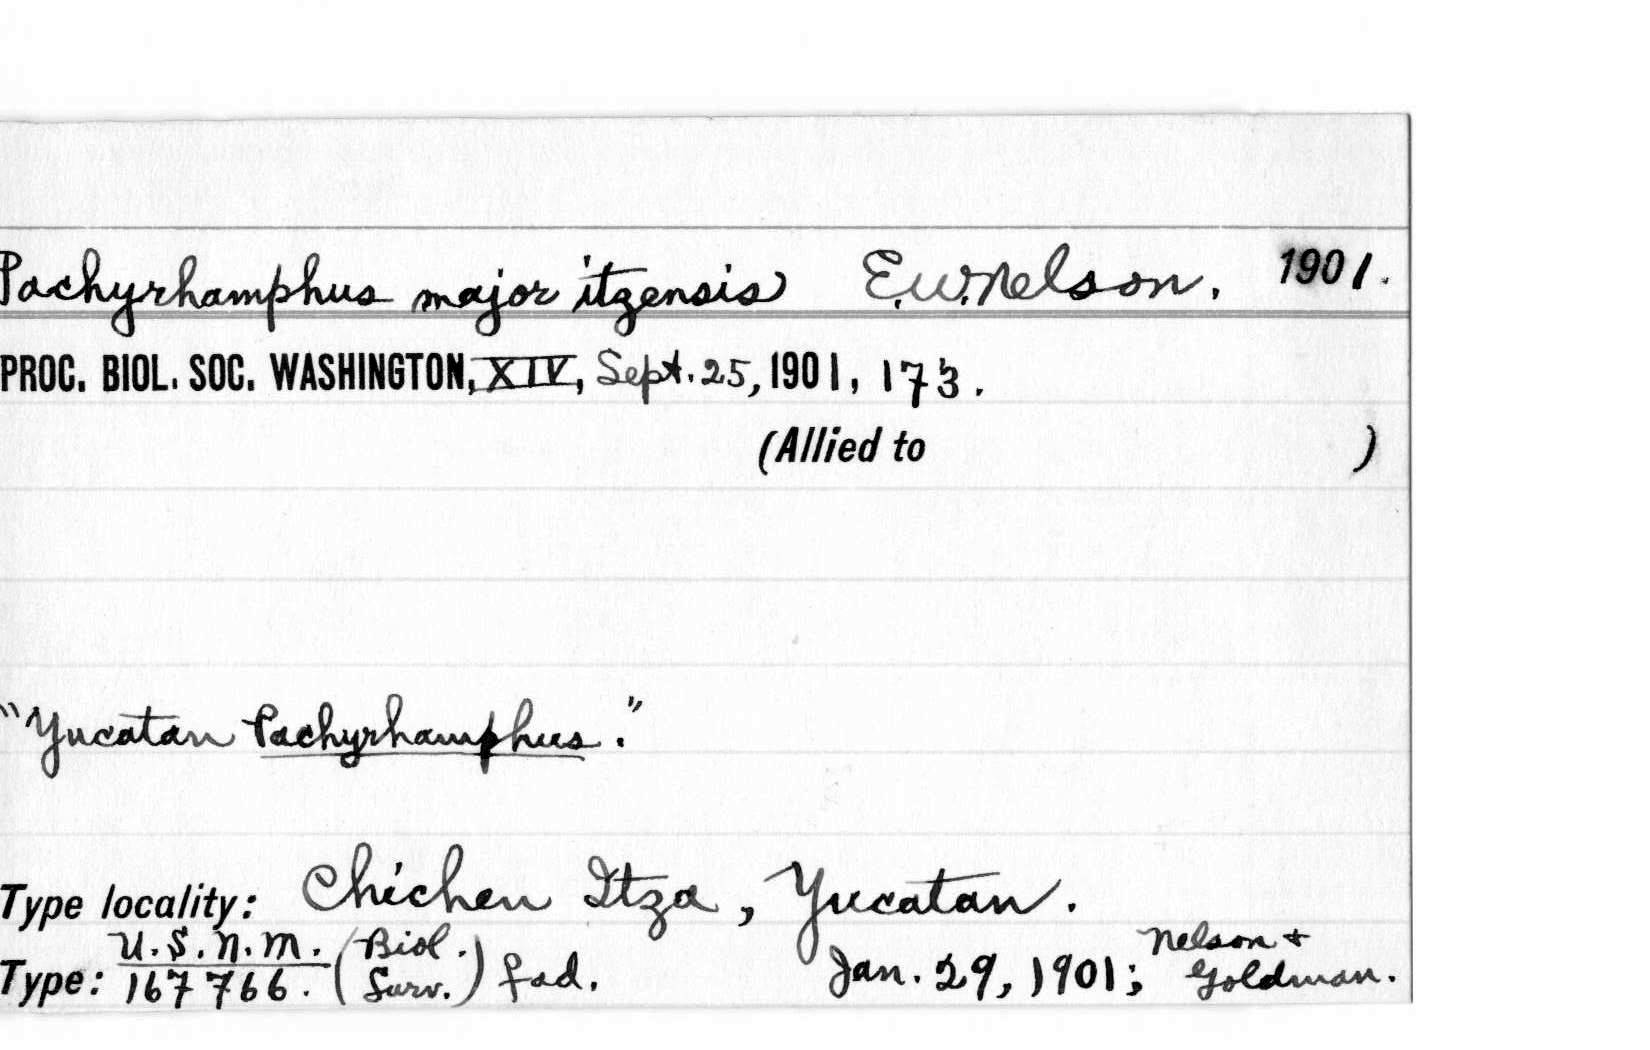 Pachyrhamphus major itzensis E.W. Nelson. 1901.
PROC. BIOL. SOC. WASHINGTON, XIV, Sept. 25, 1901, 173.
(Allied to )
"Yucatan Pachyrhamphus."
Type locality: Chichen Itza, Yucatan.
Type: U.S.N.M. 167766. (Biol. Surv.) f ad. Jan. 29, 1901; Nelson & Goldman.